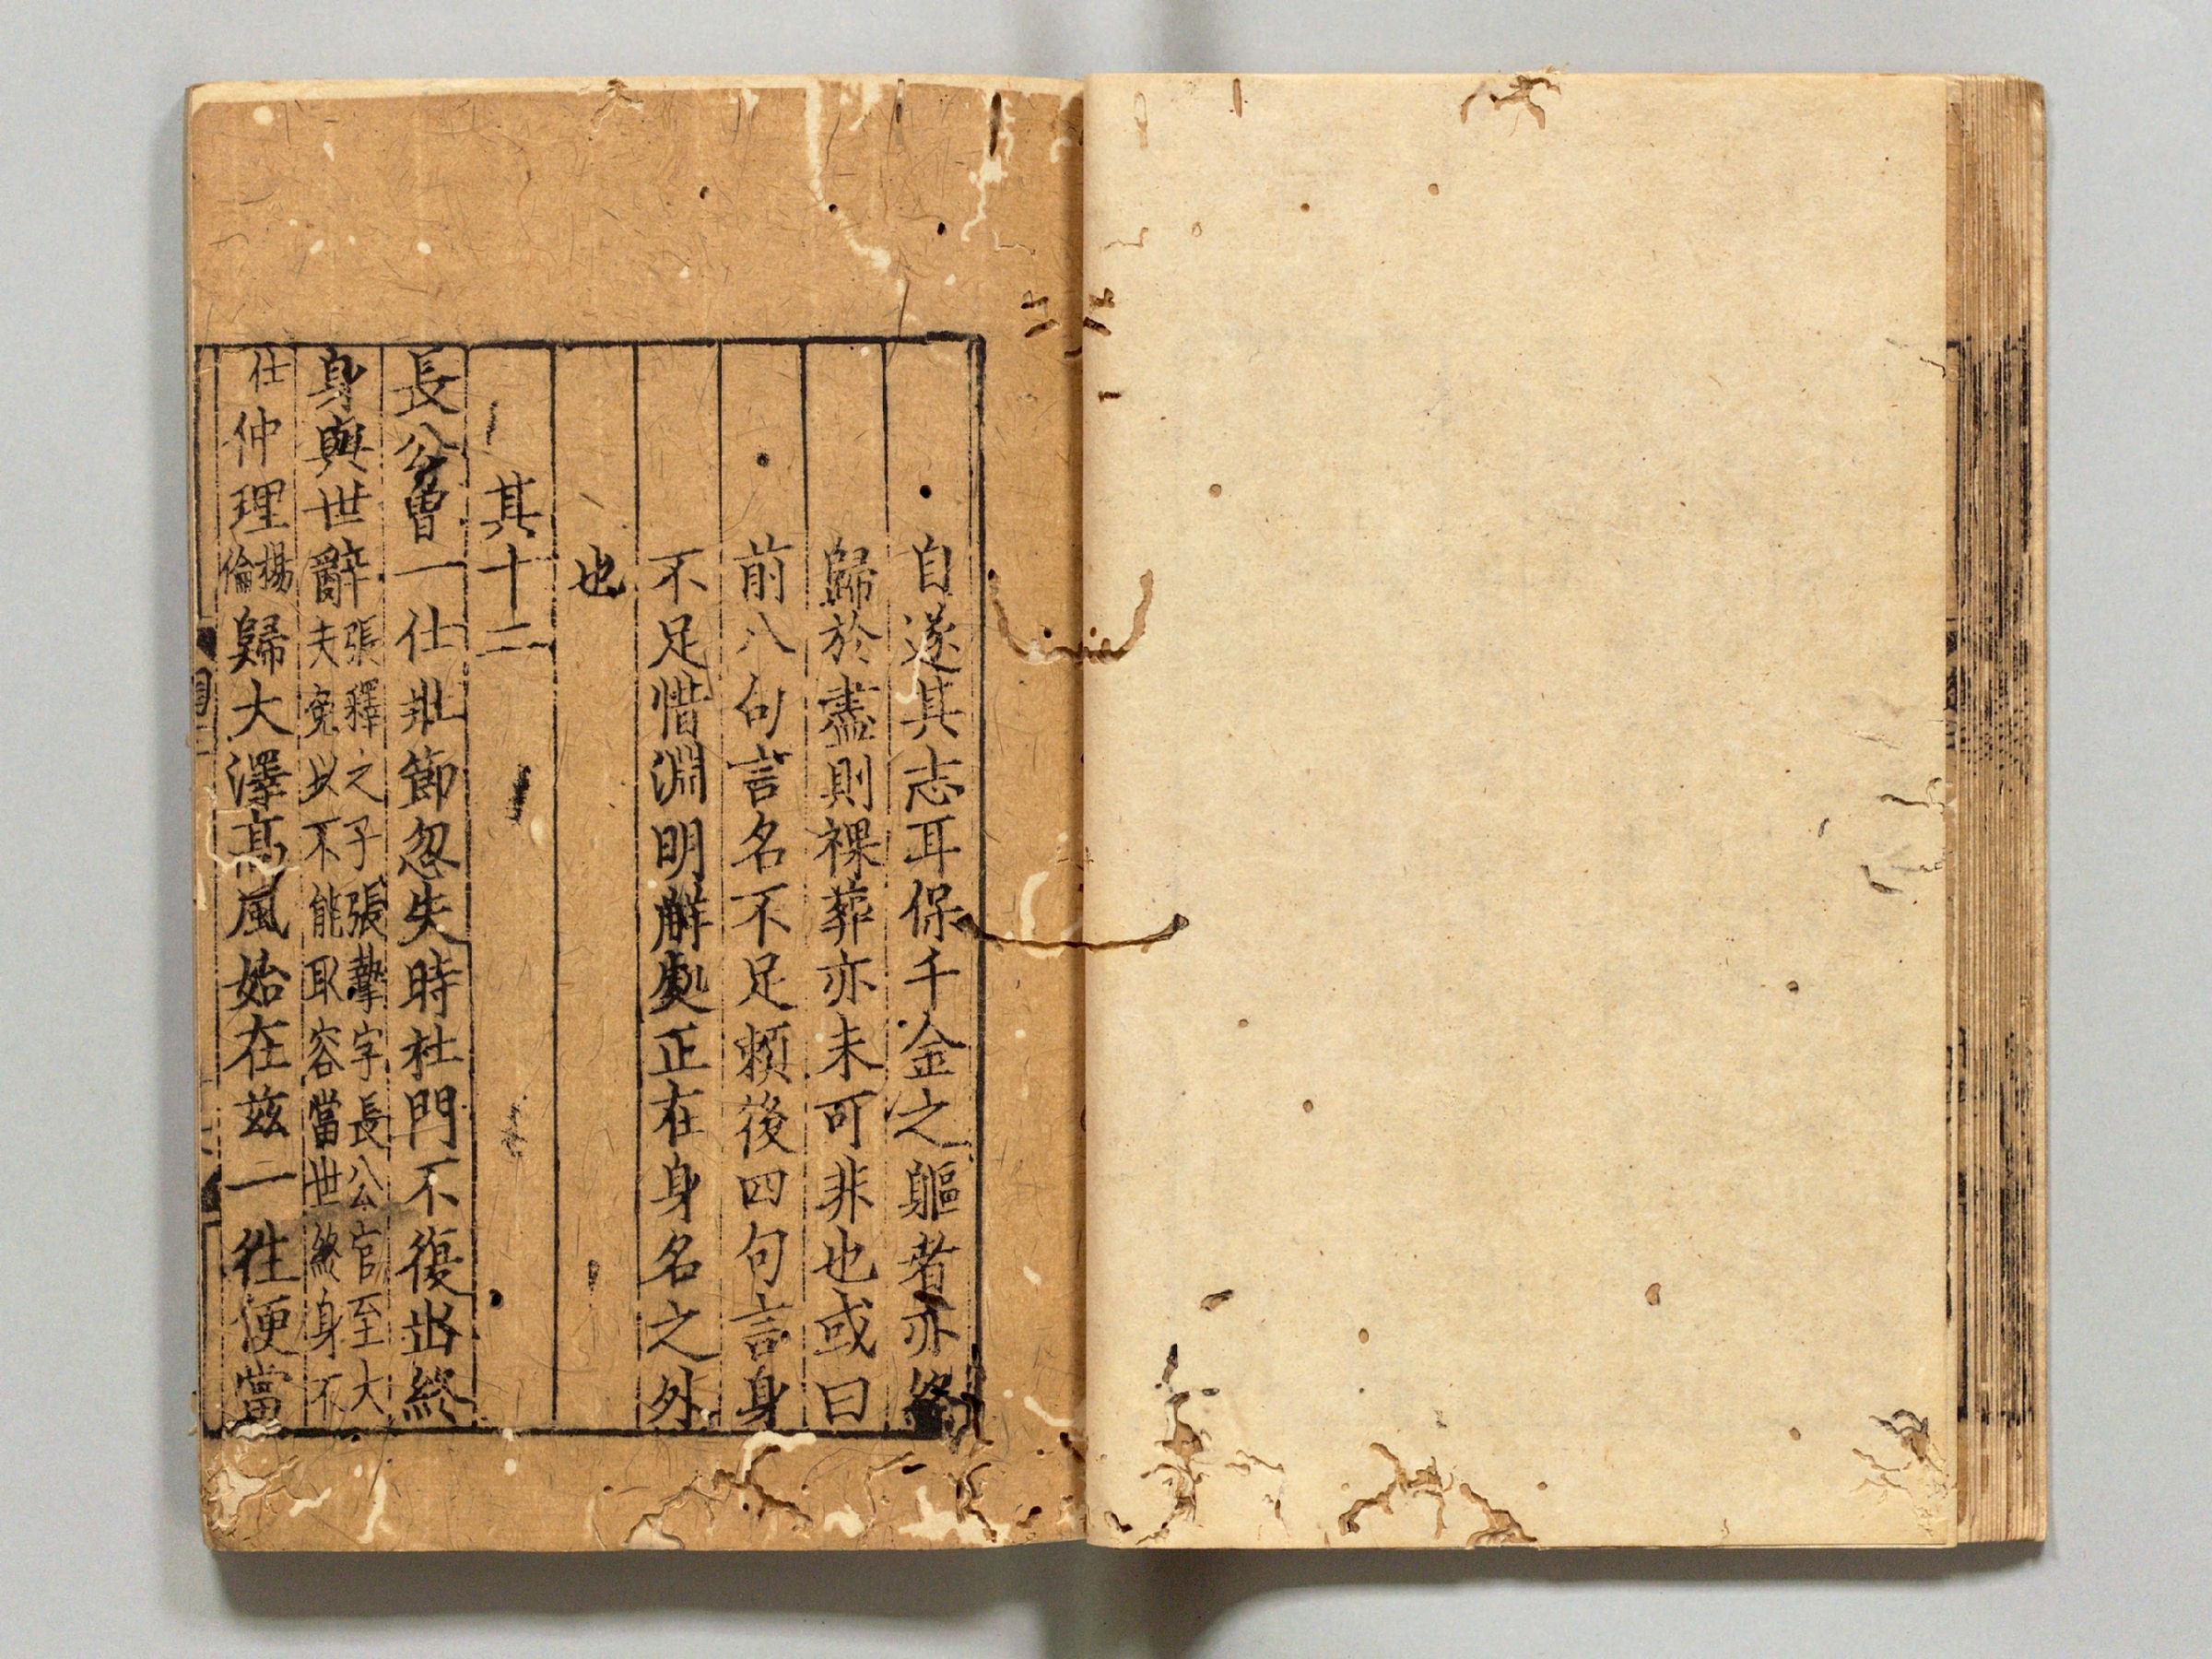 自遂其志耳保千金之軀者亦終
歸於盡則裸葬亦未可非也或曰
前八句言名不足賴後四句言身
不足惜淵明解處正在身名之外
也
其十二
長公曾一仕壯節忽失時杜門不復出終
身與世辭張釋之子張摯字長公官至大
夫免以不能取容當世終身不
仕仲理楊
倫歸大澤高風始在茲一往便當